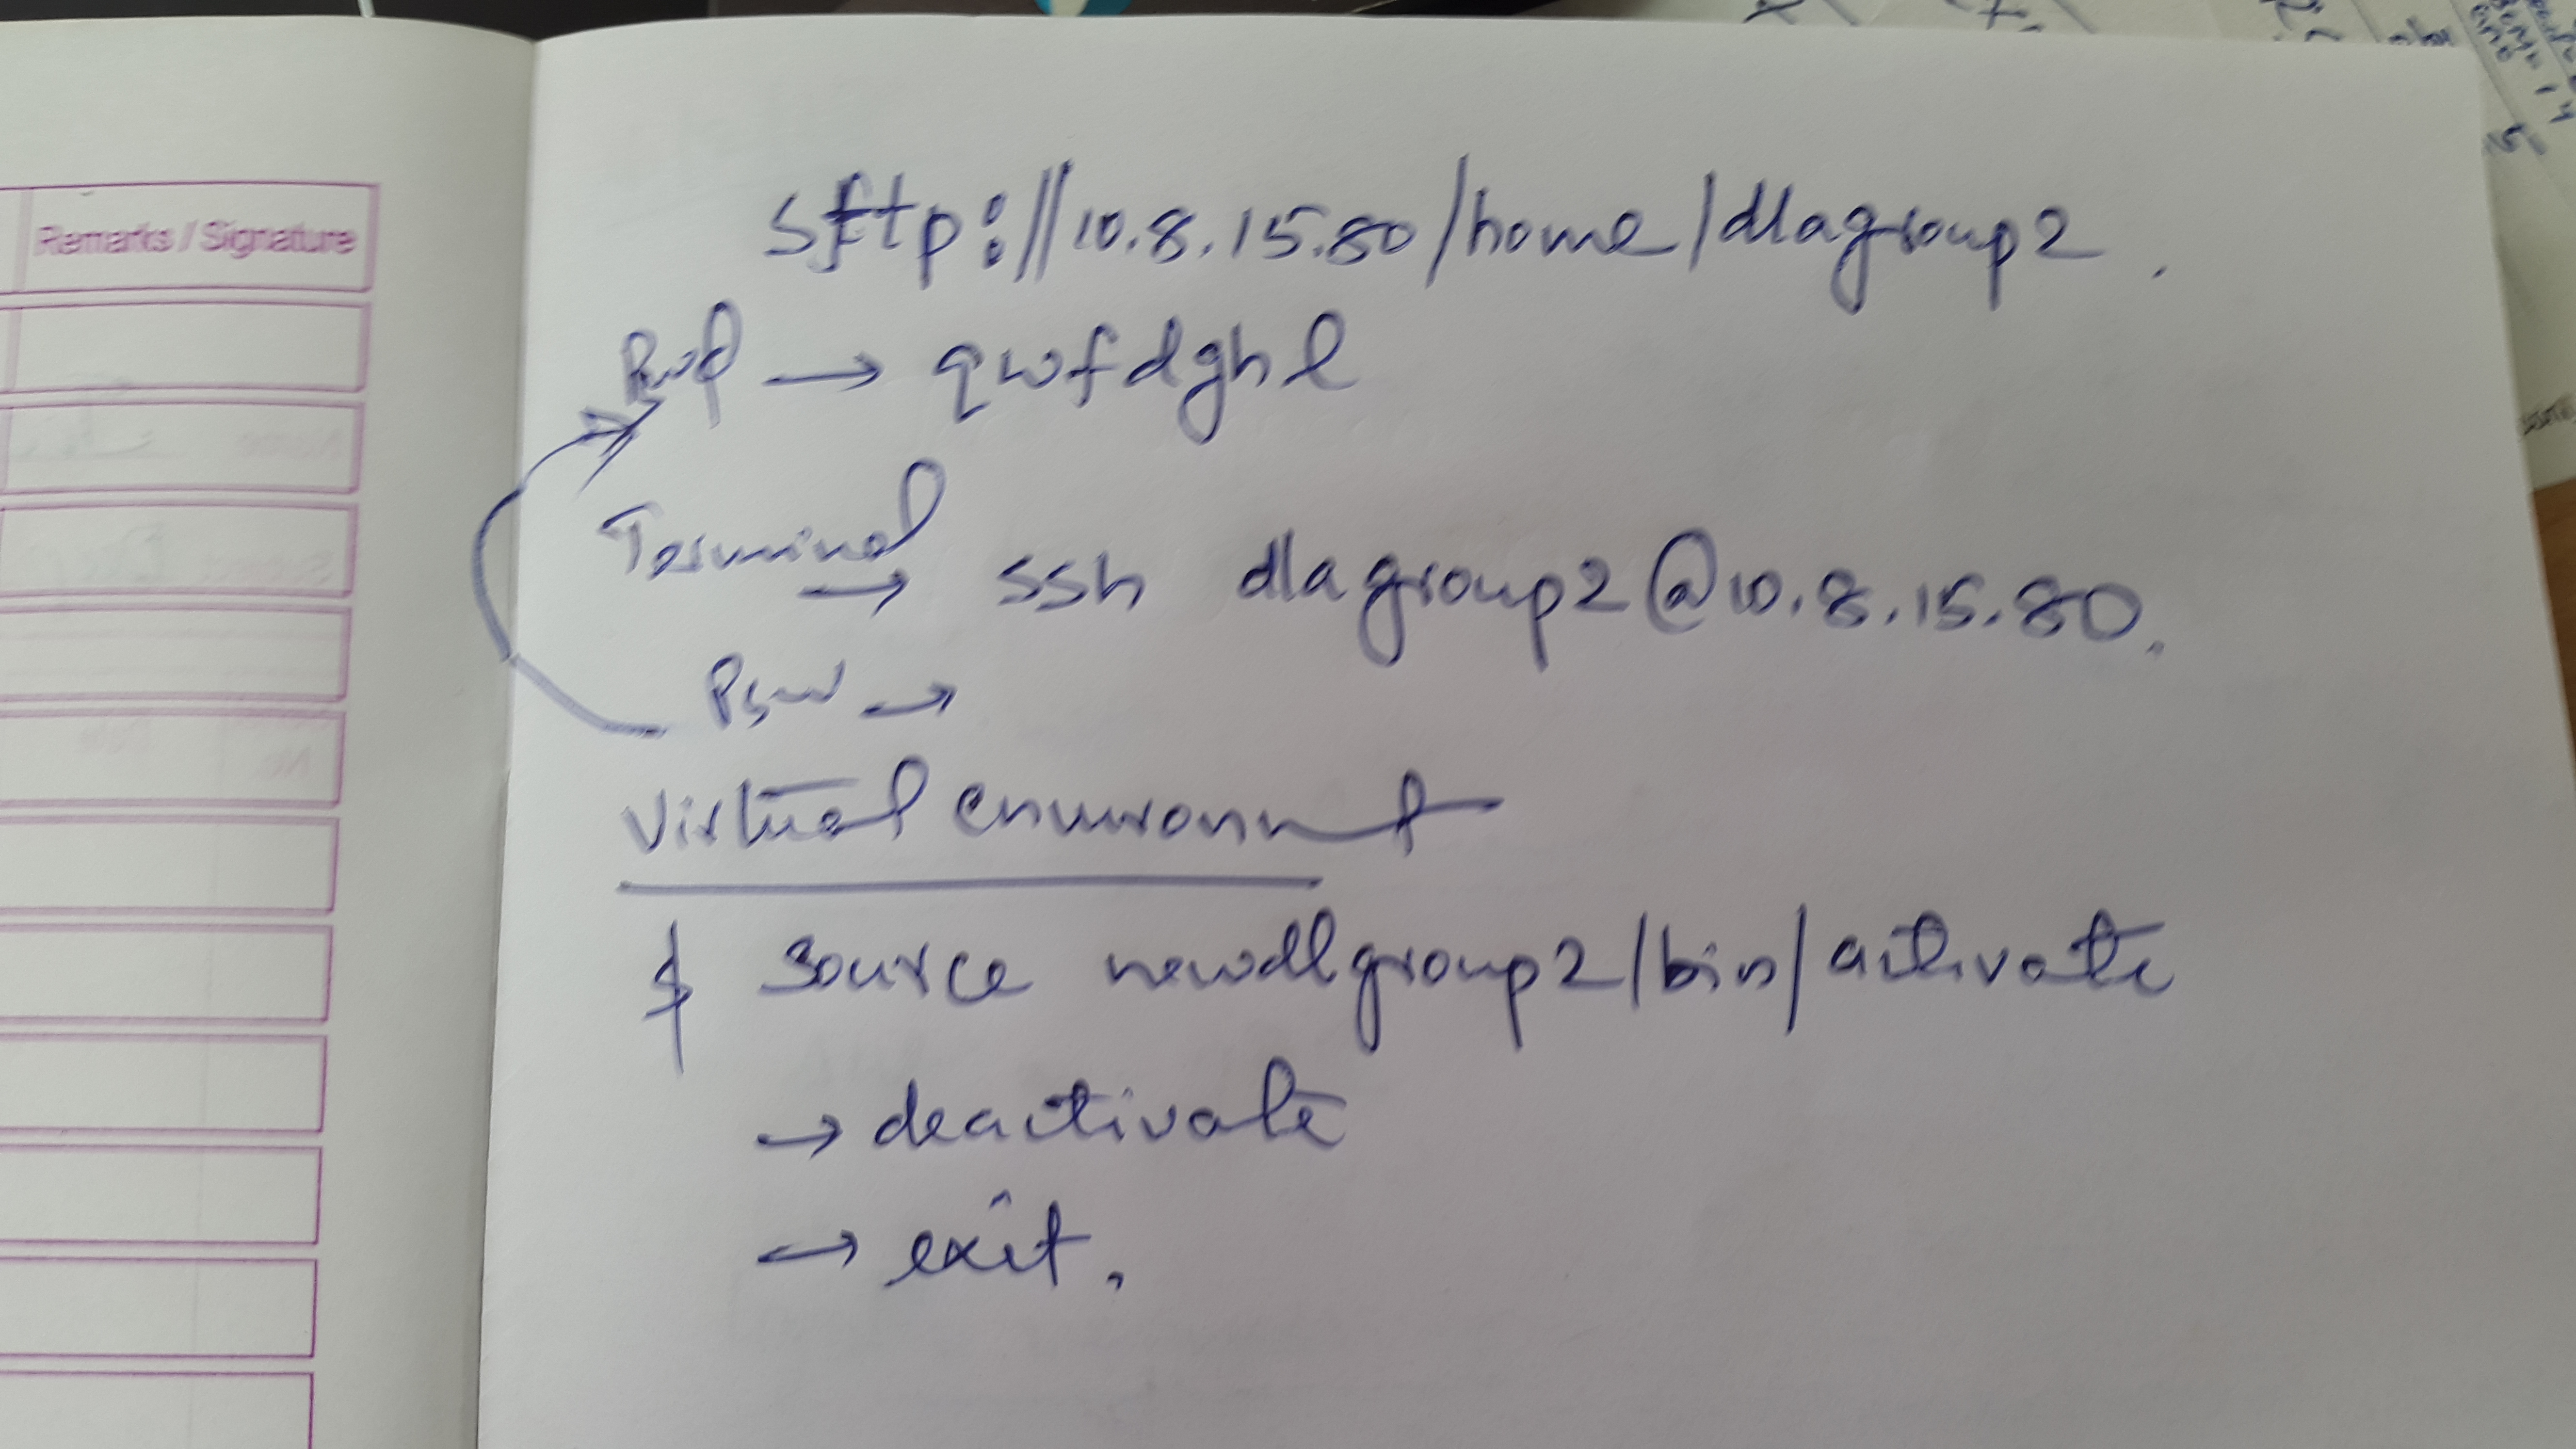 Remarks / Signature
sftp://10.8.15.80/home/dlagroup2
Pwd → qwfdghl
Terminal
→ ssh dlagroup2@10.8.15.80.
Psw →
Virtual environmnt
$ source newdlgroup2/bin/activate
→ deactivate
→ exit.